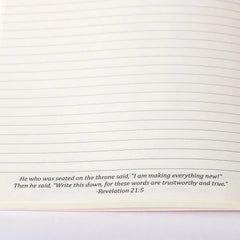 He who was seated on the throne said, "I am making everything new!"
Then he said, "Write this down, for these words are trustworthy and true."
-Revelation 21:5